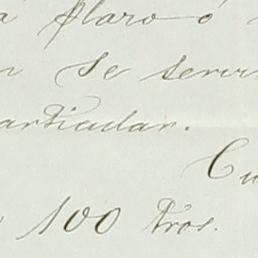 a plazo ó
n se servi
articular.
Cu
100 Pros.